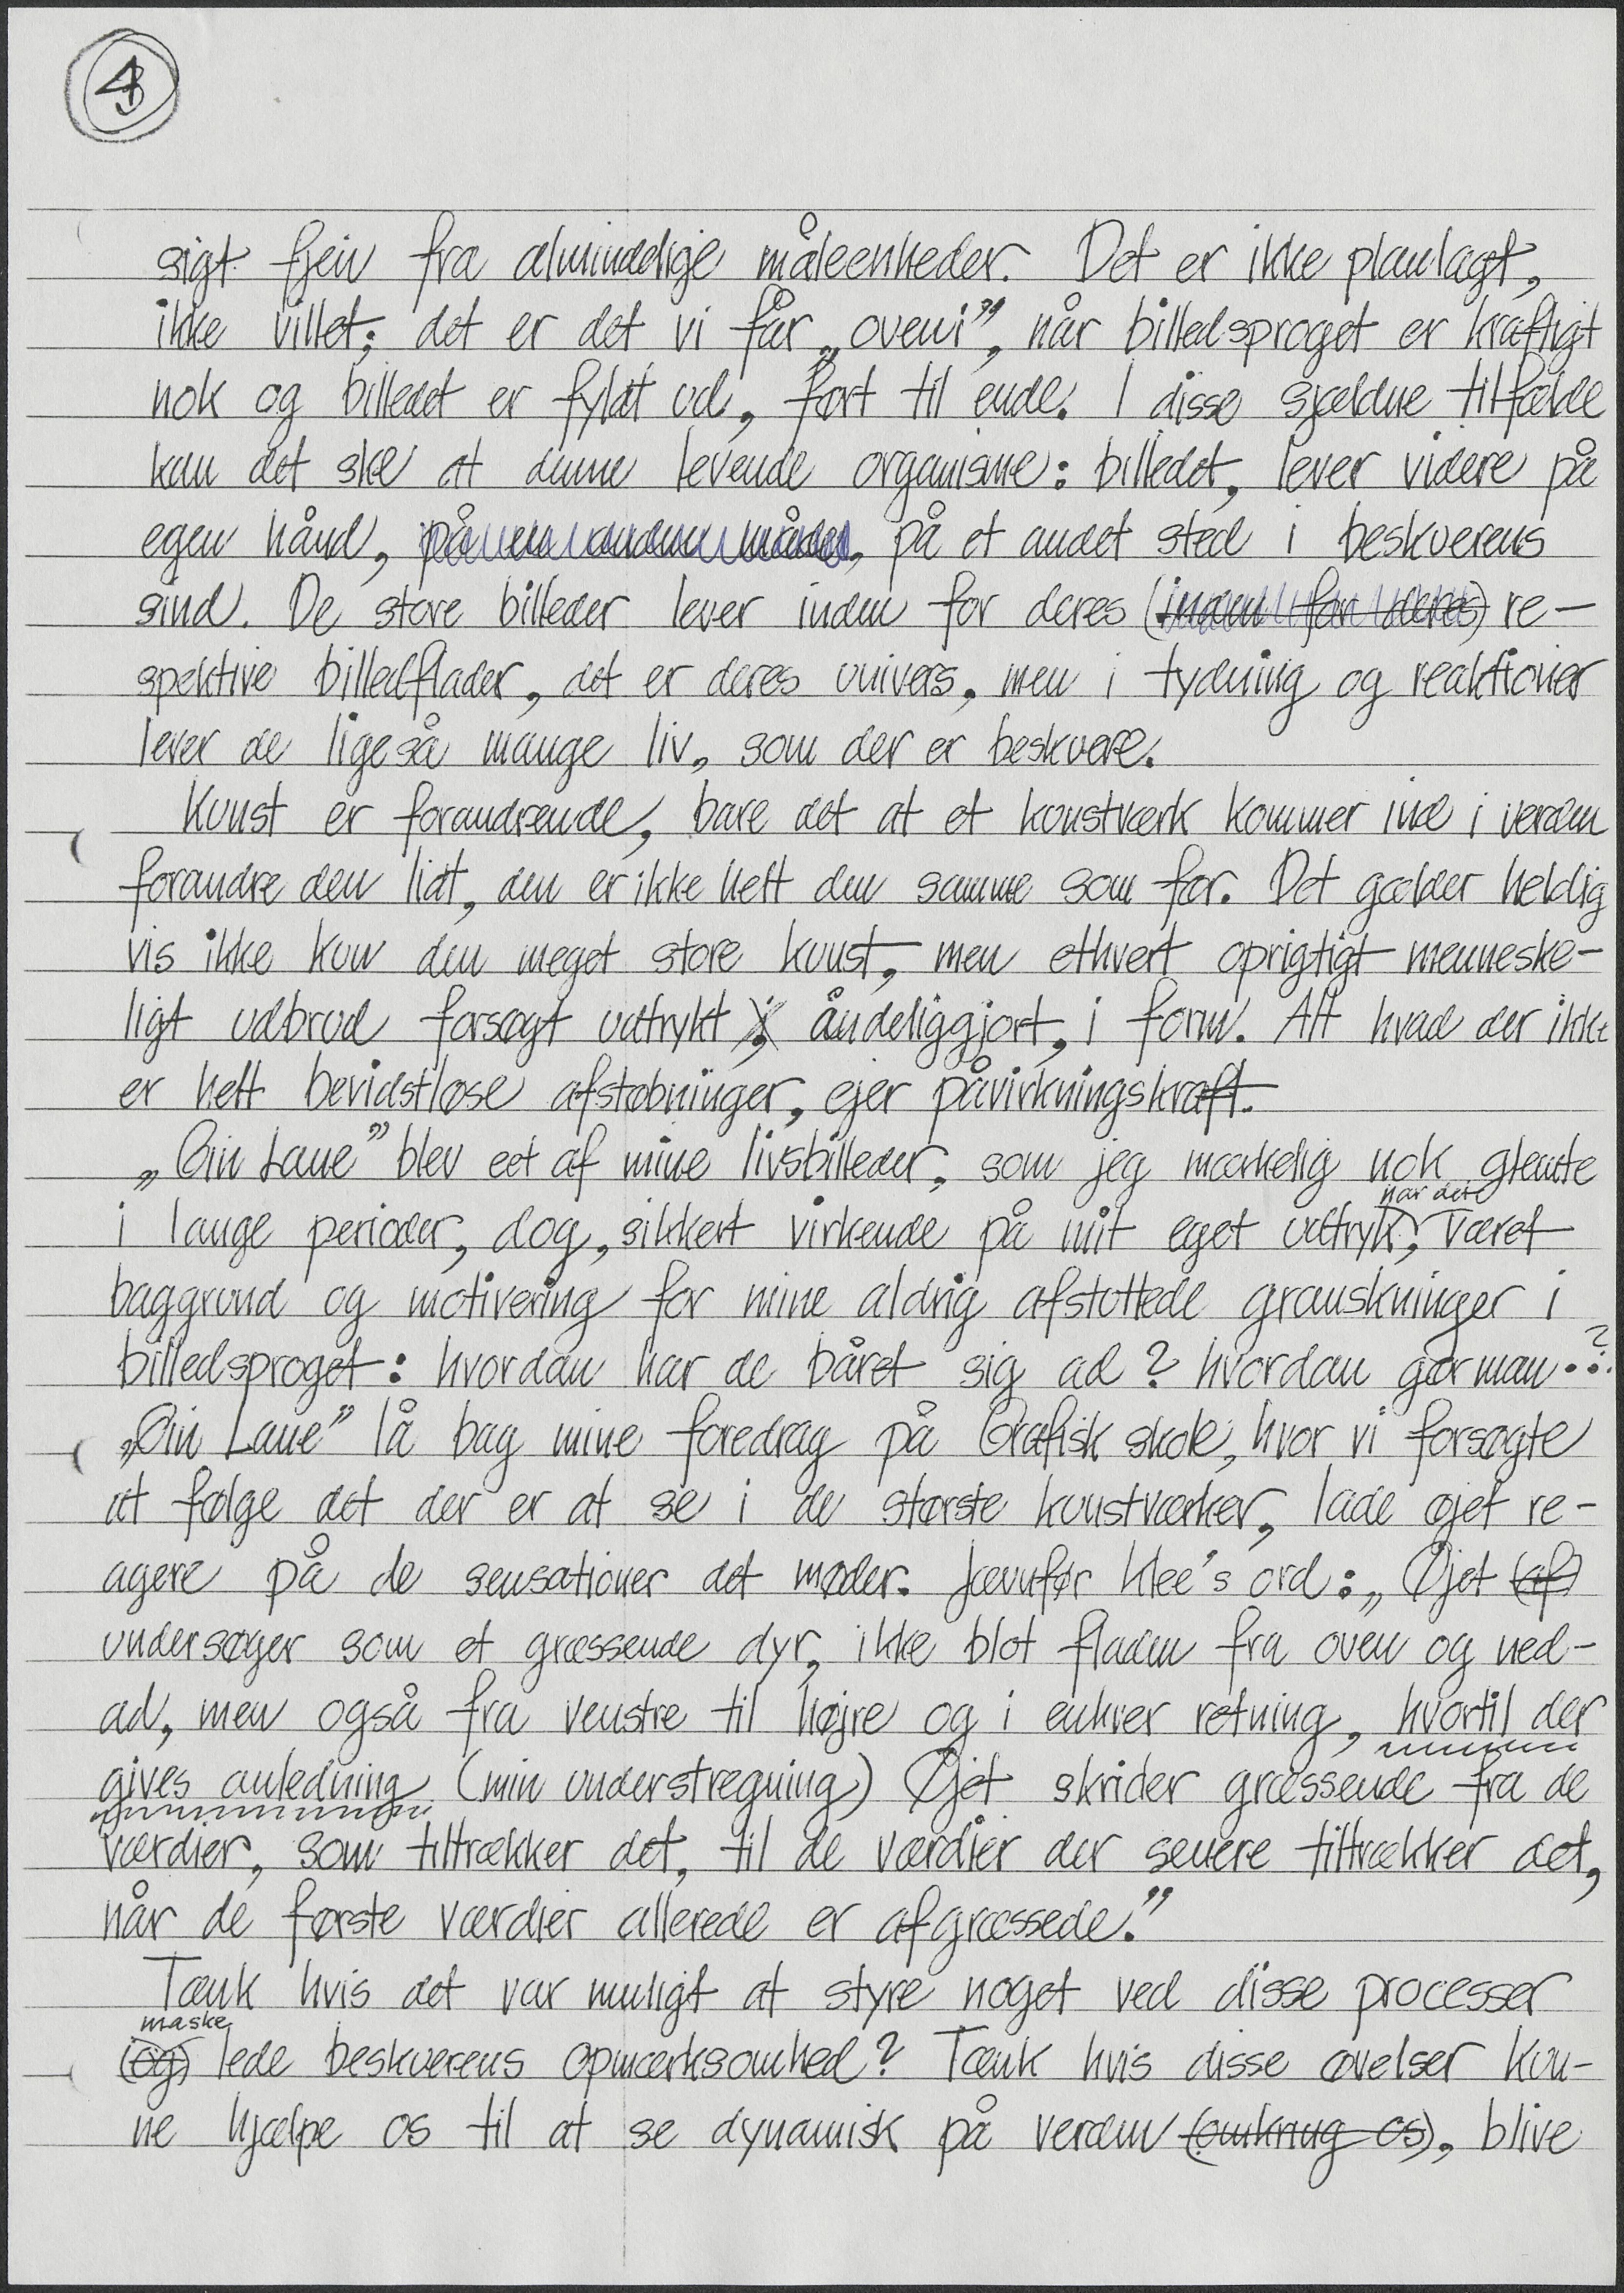 sigt fjern fra almindelige måleenheder. Det er ikke planlagt,
ikke villet; det er det vi får „oveni”, når billedsproget er kraftigt
nok og billedet er fyldt ud, ført til ende. I disse sjældne tilfælde
kan det ske at denne levende organisme: billedet, lever videre på
egen hånd, på en anden måde, på et andet sted i beskuerens
sind. De store billeder lever inden for deres (inden for deres) re-
spektive billedflader, det er deres univers, men i tydning og reaktioner
lever de ligeså mange liv, som der er beskuere.
Kunst er forandrende, bare det at et kunstværk kommer ind i verden
forandre den lidt, den er ikke helt den samme som før. Det gælder heldig
vis ikke kun den meget store kunst, men ethvert oprigtigt menneske-
ligt udbrud forsøgt udtrykt, åndeliggjort, i form. Alt hvad der ikke
er helt bevidstløse afstøbninger, ejer påvirkningskraft.
„Gin Lane” blev eet af mine livsbilleder, som jeg mærkelig nok glemte
i lange perioder, dog, sikkert virkende på mit eget udtryk, har det været
baggrund og motivering for mine aldrig afsluttede granskninger i
billedsproget: hvordan har de båret sig ad? hvordan gør man...?
„Gin Lane” lå bag mine foredrag på Grafisk skole, hvor vi forsøgte
at følge det der er at se i de største kunstværker, lade øjet re-
agere på de sensationer det møder. Jævnfør Klee's ord: „Øjet (af)
undersøger som et græssende dyr, ikke blot fladen fra oven og ned-
ad, men også fra venstre til højre og i enhver retning, hvortil der
gives anledning (min understregning) Øjet skrider græssende fra de
værdier, som tiltrækker det, til de værdier der senere tiltrækker det,
når de første værdier allerede er afgræssede.”
Tænk hvis det var muligt at styre noget ved disse processer
(og) måske lede beskuerens opmærksomhed? Tænk hvis disse øvelser kun-
ne hjælpe os til at se dynamisk på verden (omkring os), blive